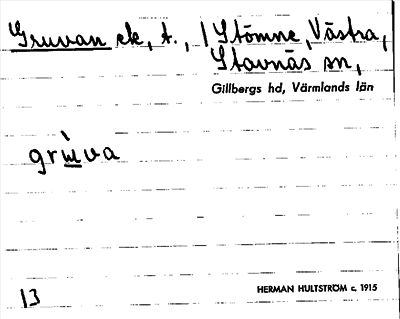 Gruvan ek, t., / Stömne, Västra,
Stavnäs sn,
Gillbergs hd, Värmlands län
grùva
13
HERMAN HULTSTRÖM c. 1915